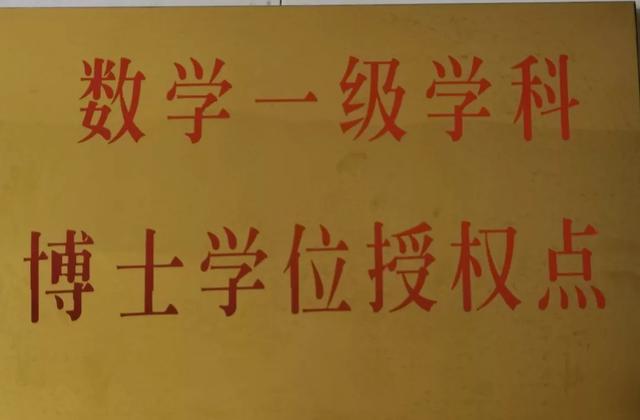 数学一级学科
博士学位授权点